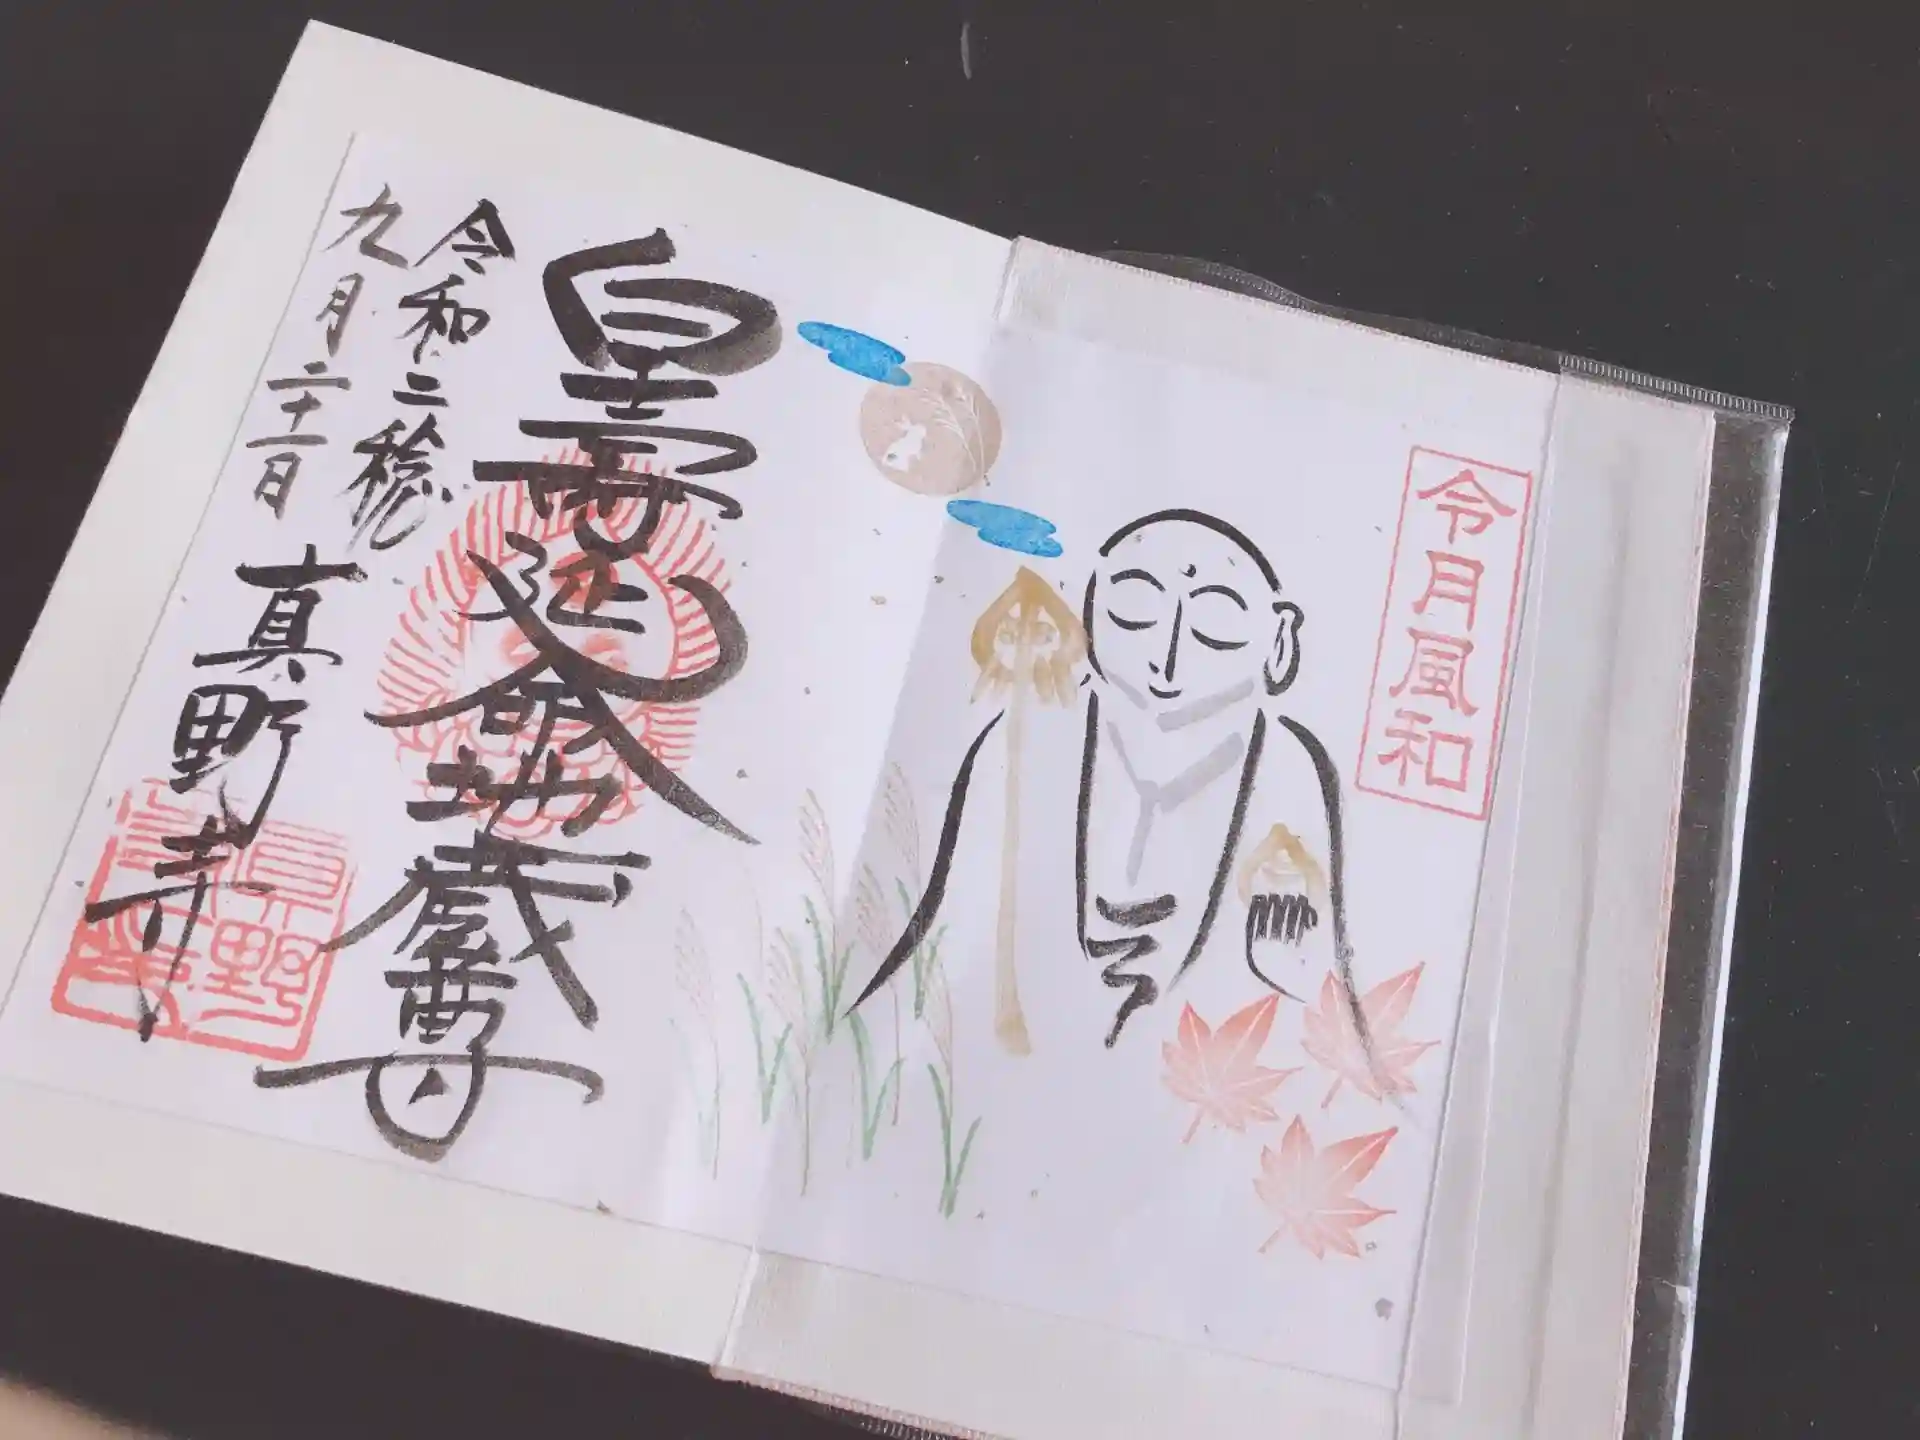 令月風和
皇寿延命地蔵尊
令和二稔
九月二十一日
真野寺